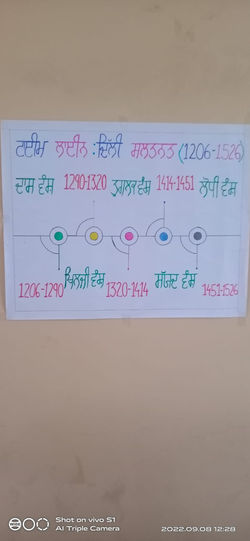 ਟਾਈਮ ਲਾਈਨ : ਦਿੱਲੀ ਸਲਤਨਤ (1206-1526)
ਦਾਸ ਵੰਸ਼ 1290-1320 ਤੁਗਲਕ ਵੰਸ਼ 1414-1451 ਲੋਧੀ ਵੰਸ਼
1206-1290 ਖਿਲਜੀ ਵੰਸ਼ 1320-1414 ਸੱਯਦ ਵੰਸ਼ 1451-1526
Shot on vivo S1
AI Triple Camera
2022.09.08 12:28